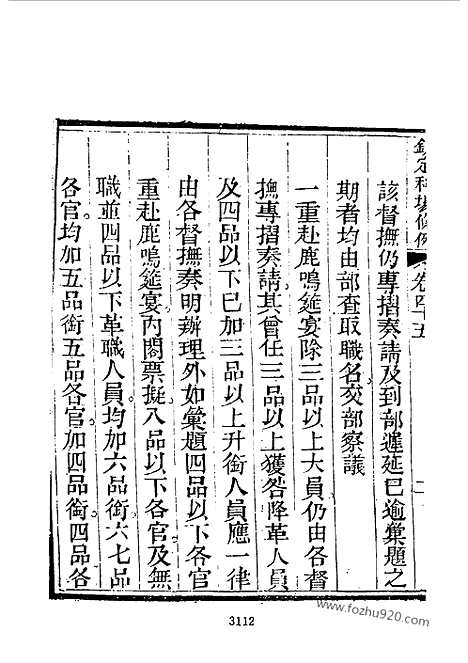 欽定科場條例 卷四十五
該督撫仍專摺奏請及到部遲延已逾彙題之
期者均由部查取職名交部察議
一重赴鹿鳴筵宴除三品以上大員仍由各督
撫專摺奏請其曾任三品以上獲咎降革人員
及四品以下已加三品以上升銜人員應一律
由各督撫奏明辦理外如彙題四品以下各官
重赴鹿鳴筵宴內閣票擬八品以下各官及無
職並四品以下革職人員均加六品銜六七品
各官均加五品銜五品各官加四品銜四品各
3112
www.fozhu920.com